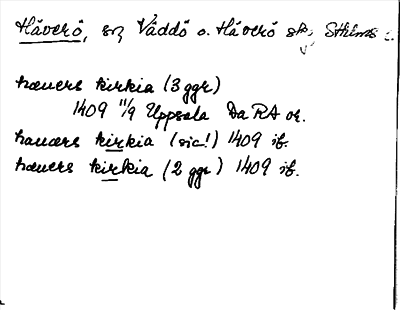 Häverö, sn, Väddö o. Häverö sk, Sthlms l.
hauers kirkia (3 ggr)
1409 11/9 Uppsala Da RA or.
hauærs kirkia (sic!) 1409 ib.
hauers kirkia (2 ggr) 1409 ib.